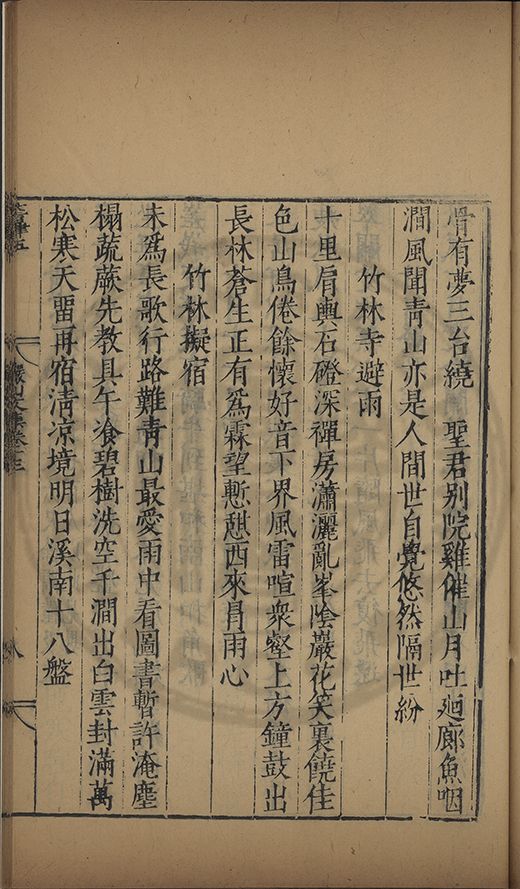 骨有夢三台繞　聖君别院雞催山月吐廻廊魚咽
澗風聞靑山亦是人間世自覺悠然隔世紛
竹林寺避雨
十里肩輿石磴深禪房瀟灑亂峯陰巖花笑裏饒佳
色山鳥倦餘懷好音下界風雷喧衆壑上方鐘鼓出
長林蒼生正有爲霖望慙愧西來冐雨心
竹林擬宿
未爲長歌行路難靑山最愛雨中看圖書暫許淹塵
榻蔬蕨先教具午飡碧樹洗空千澗出白雲封滿萬
松寒天畱再宿淸凉境明日溪南十八盤
八